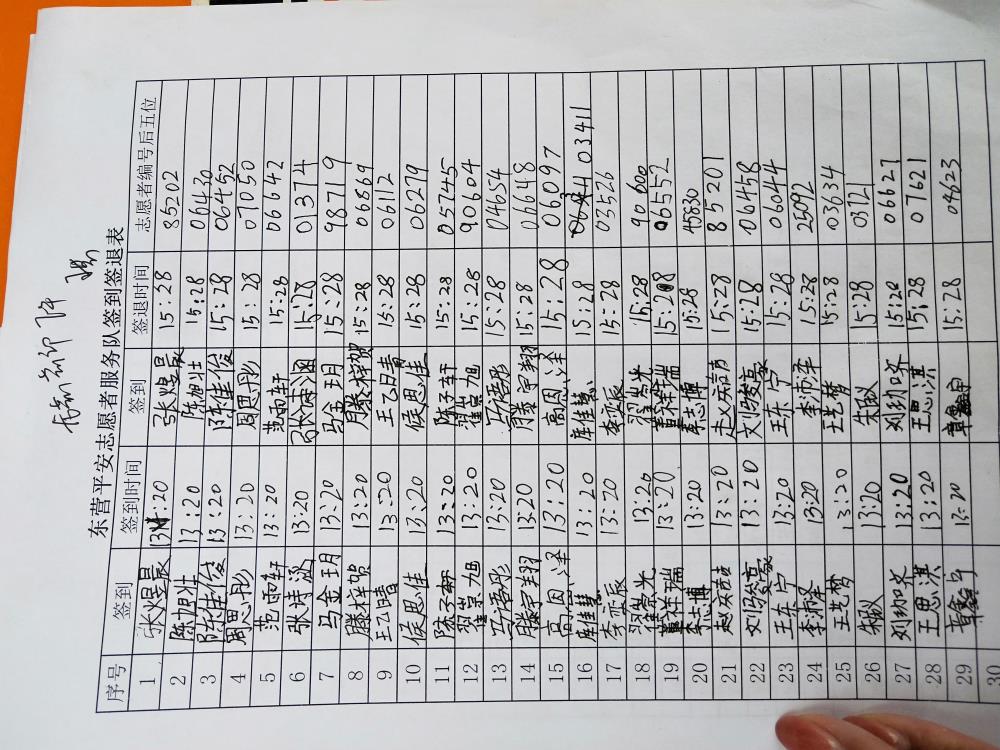 东营平安志愿者服务队签到签退表
序号 签到 签到时间 签到 签退时间 志愿者编号后五位
1 张煜晨 13:20 张煜晨 15:28 85202
2 陈旭壮 13:20 陈旭壮 15:28 06430
3 陈佳俊 13:20 陈佳俊 15:28 06452
4 周思彤 13:20 周思彤 15:28 07050
5 范雨轩 13:20 范雨轩 15:28 06642
6 张诗涵 13:20 张诗涵 15:28 01374
7 马金玥 13:20 马金玥 15:28 98719
8 滕梓贺 13:20 滕梓贺 15:28 06869
9 王乙晴 13:20 王乙晴 15:28 06112
10 侯思佳 13:20 侯思佳 15:28 06279
11 陈子轩 13:20 陈子轩 15:28 05745
12 翟崇旭 13:20 翟崇旭 15:28 90604
13 马语彤 13:20 马语彤 15:28 04654
14 滕宇翔 13:20 滕宇翔 15:28 06648
15 高因泽 13:20 高因泽 15:28 06097
16 佳慧 13:20 佳慧 15:28 03411
17 李奕辰 13:20 李奕辰 15:28 03526
18 13:20 15:28 90600
19 董祥瑞 13:20 董祥瑞 15:28 06552
20 李志博 13:20 李志博 15:28 45830
21 赵 13:20 赵 15:28 85201
22 13:20 15:28 06458
23 王东宁 13:20 王东宁 15:28 06044
24 李沛泽 13:20 李沛泽 15:28 25092
25 王艺梦 13:20 王艺梦 15:28 03634
26 朱 13:20 朱 15:28 03721
27 刘 13:20 刘 15:28 06621
28 王思淇 13:20 王思淇 15:28 07621
29 13:20 15:28 04623
30